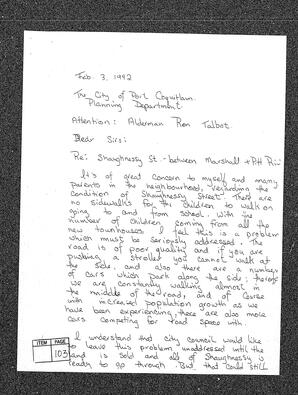 Feb. 3, 1992
The City of Port Coquitlam
Planning Department
Attention: Alderman Ron Talbot.
Dear Sirs:
Re: Shaughnessy St. - between Marshall + Pitt River
It's of great concern to myself and many
parents in the neighbourhood, regarding the
condition of Shaughnessy Street. There are
no sidewalks for the children to walk on
going to and from school. With the
number of children coming from all the
new townhouses I feel this is a problem
which must be seriously addressed. The
road is of poor quality and if you are
pushing a stroller you cannot walk at
the side, and also there are a number
of cars which park along the side; therefore
we are constantly walking almost in
the middle of the road, and of course
with increased population growth as we
have been experiencing, there are also more
cars competing for road space with.
I understand that city council would like
to leave this problem unaddressed until the
land is sold and all of Shaughnessy is
ready to go through. But, that could still
ITEM PAGE
103